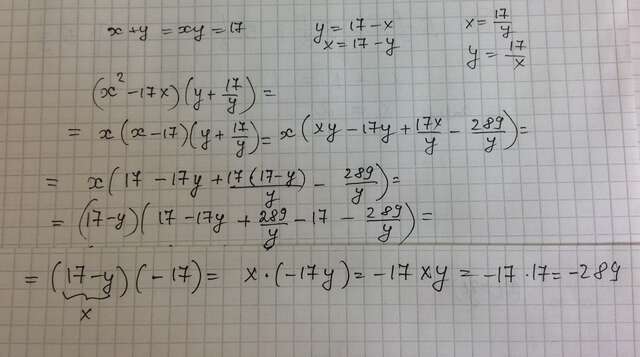 x+y = xy = 17    y = 17 - x    x = 17/y
x = 17 - y    y = 17/x
(x² - 17x)(y + 17/y) =
= x(x - 17)(y + 17/y) = x(xy - 17y + 17x/y - 289/y) =
= x(17 - 17y + 17(17-y)/y - 289/y) =
= (17-y)(17 - 17y + 289/y - 17 - 289/y) =
= (17-y)(-17) = x·(-17y) = -17xy = -17·17 = -289
x